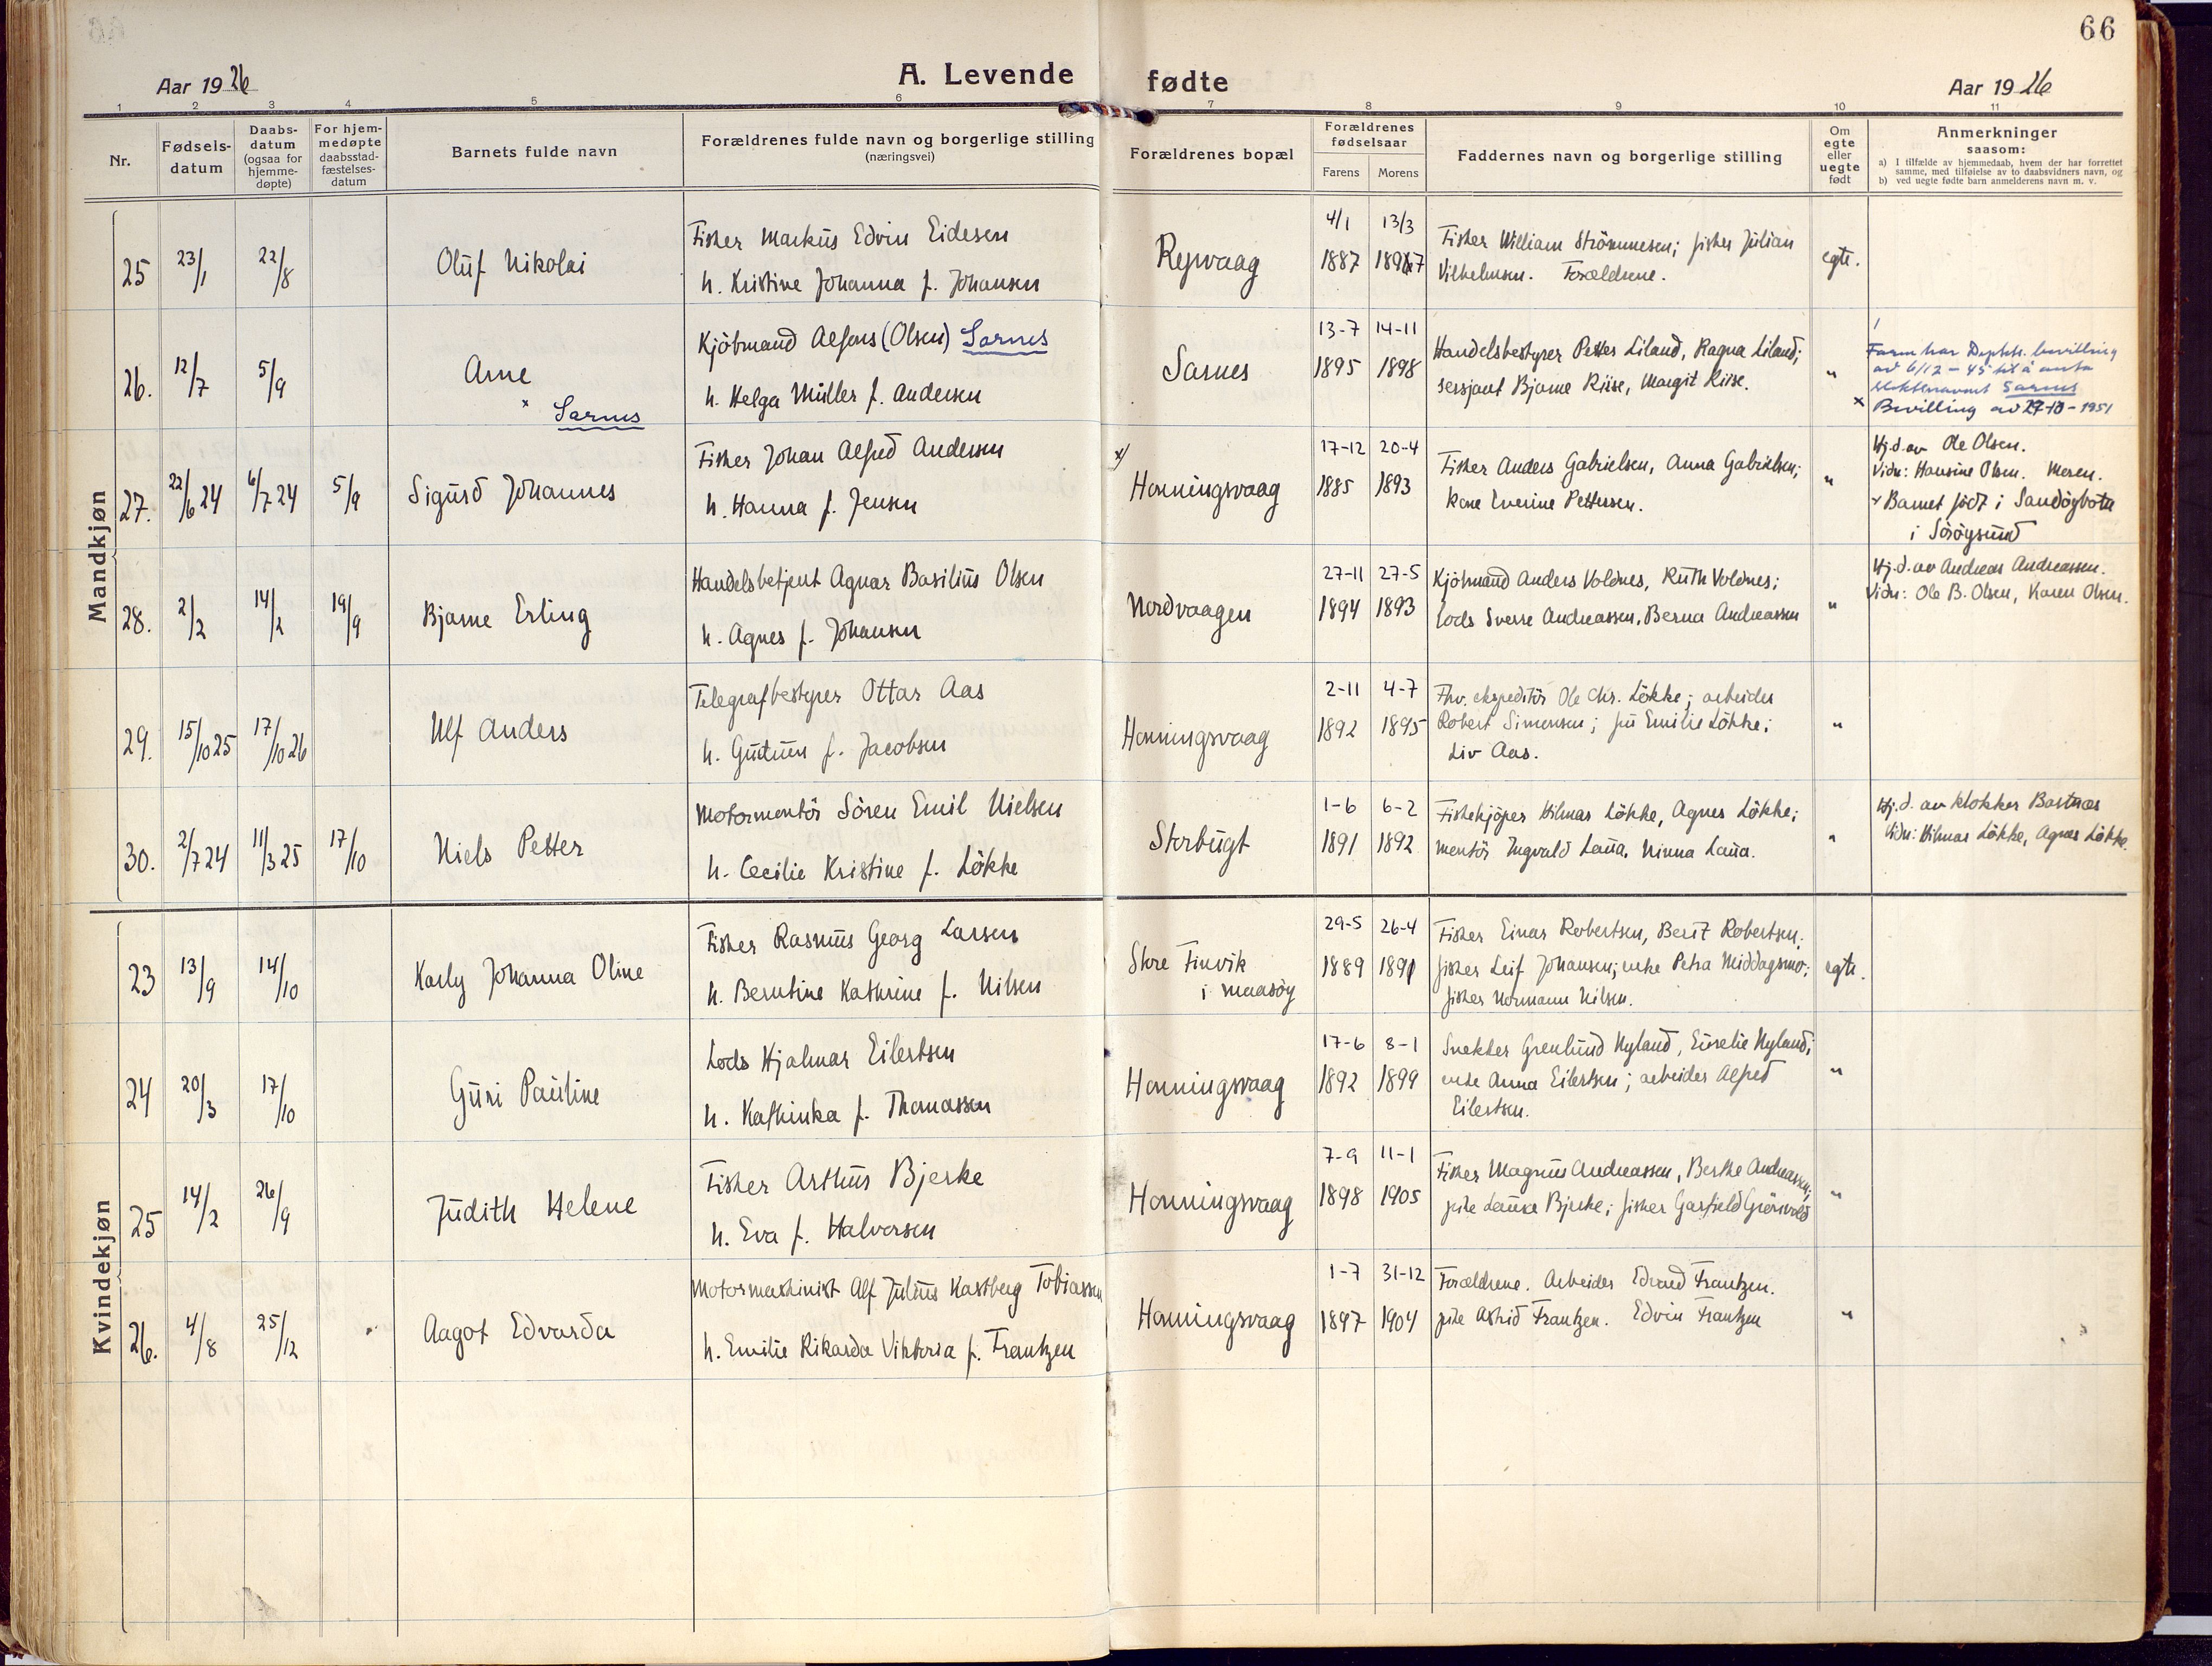 66
Aar 1926
A. Levende fødte
Aar 1926
1 2 3 4 5 6 7 8 9 10 11
Nr.
Fødsels-
datum
Daabs-
datum
(ogsaa for
hjemme-
døpte)
For hjem-
medøpte
daabsstad-
fæstelses-
datum
Barnets fulde navn
Forældrenes fulde navn og borgerlige stilling
(næringsvei)
Forældrenes bopæl
Forældrenes
fødselsaar
Farens Morens
Faddernes navn og borgerlige stilling
Om
egte
eller
uegte
født
Anmerkninger
saasom:
a) I tilfælde av hjemmedaab, hvem der har forrettet
samme, med tilføielse av to daabsvidners navn, og
b) ved uegte fødte barn anmelderens navn m. v.
Mandkjøn
25 23/1 22/8 Oluf Nikolai
Fisker Markus Edvin Eidesen
h. Kristine Johanna f. Johansen
Repvaag
4/1 13/3
1887 1897
Fisker William Strömmesen; fisker Julian
Vilhelmsen. Forældrene.
egte.
26. 12/7 5/9 Arne
x Sarnes
Kjöbmand Alfons (Olsen) Sarnes
h. Helga Müller f. Andersen
Sarnes
13-7 14-11
1895 1898
Handelsbestyrer Petter Liland, Ragna Liland;
sersjant Bjarne Riise, Margit Riise.
"
Faren har Deptts. bevilling
av 6/12-45 til å anta
slektsnavnet Sarnes
x Bevilling av 29-10-1951
27. 22/6 24 6/7 24 5/9 Sigurd Johannes
Fisker Johan Alfred Andersen
h. Hanna f. Jensen
x) Honningsvaag
17-12 20-4
1885 1893
Fisker Anders Gabrielsen, Anna Gabrielsen;
kone Everine Pettersen.
"
Hj.d. av Ole Olsen.
Vidn: Hansine Olsen. Meren.
x Barnet født i Sandöybotn
i Söröysund
28. 2/2 14/2 19/9 Bjarne Erling
Handelsbetjent Agnar Basilius Olsen
h. Agnes f. Johansen
Nordvaagen
27-11 27-5
1894 1893
Kjöbmand Anders Voldnes, Ruth Voldnes;
lods Sverre Andreassen, Berna Andreassen
"
Hj.d. av Andreas Andreassen.
Vidn: Ole B. Olsen, Karen Olsen.
29. 15/10 25 17/10 26 Ulf Anders
Telegrafbestyrer Ottar Aas
h. Gudrun f. Jacobsen
Honningsvaag
2-11 4-7
1892 1895
Fhv. ekspeditör Ole Chr. Lökke; arbeider
Robert Simonsen; fru Emilie Lökke;
Liv Aas.
"
30. 2/7 24 11/3 25 17/10 Niels Petter
Motormontör Sören Emil Nielsen
h. Cecilie Kristine f. Lökke
Storbugt
1-6 6-2
1891 1892
Fiskekjöper Hilmar Lökke, Agnes Lökke;
montör Ingvald Laua, Ninna Laua.
"
Hj.d. av klokker Bastnæs
Vidn: Hilmar Lökke, Agnes Lökke.
Kvindekjøn
23 13/9 14/10 Karly Johanna Oline
Fisker Rasmus Georg Larsen
h. Berntine Kathrine f. Nilsen
Store Finvik
i Maasöy
29-5 26-4
1889 1891
Fisker Einar Robertsen, Berit Robertsen;
fisker Leif Johansen; enke Petra Middagsmo;
fisker Normann Nilsen.
egte.
24 20/3 17/10 Guri Pauline
Lods Hjalmar Eilertsen
h. Kathinka f. Thomassen
Honningsvaag
17-6 8-1
1892 1899
Snekker Grenlund Nyland, Eurelie Nyland;
enke Anna Eilertsen; arbeider Alfred
Eilertsen.
"
25 14/2 26/9 Judith Helene
Fisker Arthur Bjerke
h. Eva f. Halvorsen
Honningsvaag
7-9 11-1
1898 1905
Fisker Magnus Andreassen, Berthe Andreassen;
pike Laura Bjerke; fisker Garfield Grönvold
"
26. 4/8 25/12 Aagot Edvarda
Motormaskinist Alf Julius Kastberg Tobiassen
h. Emilie Rikarda Viktoria f. Frantzen
Honningsvaag
1-7 31-12
1897 1904
Forældrene. Arbeider Edvard Frantzen.
pike Astrid Frantzen. Edvin Frantzen
"